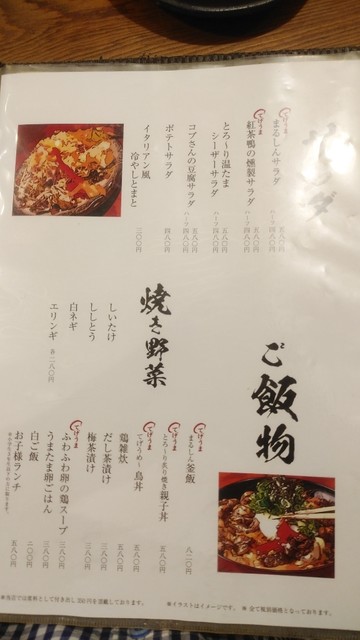 サラダ
てげうま
まるしんサラダ
五八〇円
ハーフ 四八〇円
てげうま
紅茶鴨の燻製サラダ
五八〇円
ハーフ 四八〇円
とろ〜り温たま
シーザーサラダ
五八〇円
ハーフ 四八〇円
コブさんの豆腐サラダ
五八〇円
ハーフ 四八〇円
ポテトサラダ
四八〇円
イタリアン風
冷やしとまと
三〇〇円
焼き野菜
しいたけ
ししとう
白ネギ
エリンギ
各二八〇円
ご飯物
てげうま
まるしん釜飯
八二〇円
てげうま
とろ〜り炙り焼き親子丼
五八〇円
てげうま
てげうめ〜鳥丼
五八〇円
鶏雑炊
五八〇円
だし茶漬け
三八〇円
梅茶漬け
三八〇円
てげうま
ふわふわ卵の鶏スープ
三八〇円
うまたま卵ごはん
三八〇円
白ご飯
二〇〇円
お子様ランチ
五八〇円
※当店では席料として付き出し350円を頂戴しております。
※イラストはイメージです。
※全て税別価格となっております。